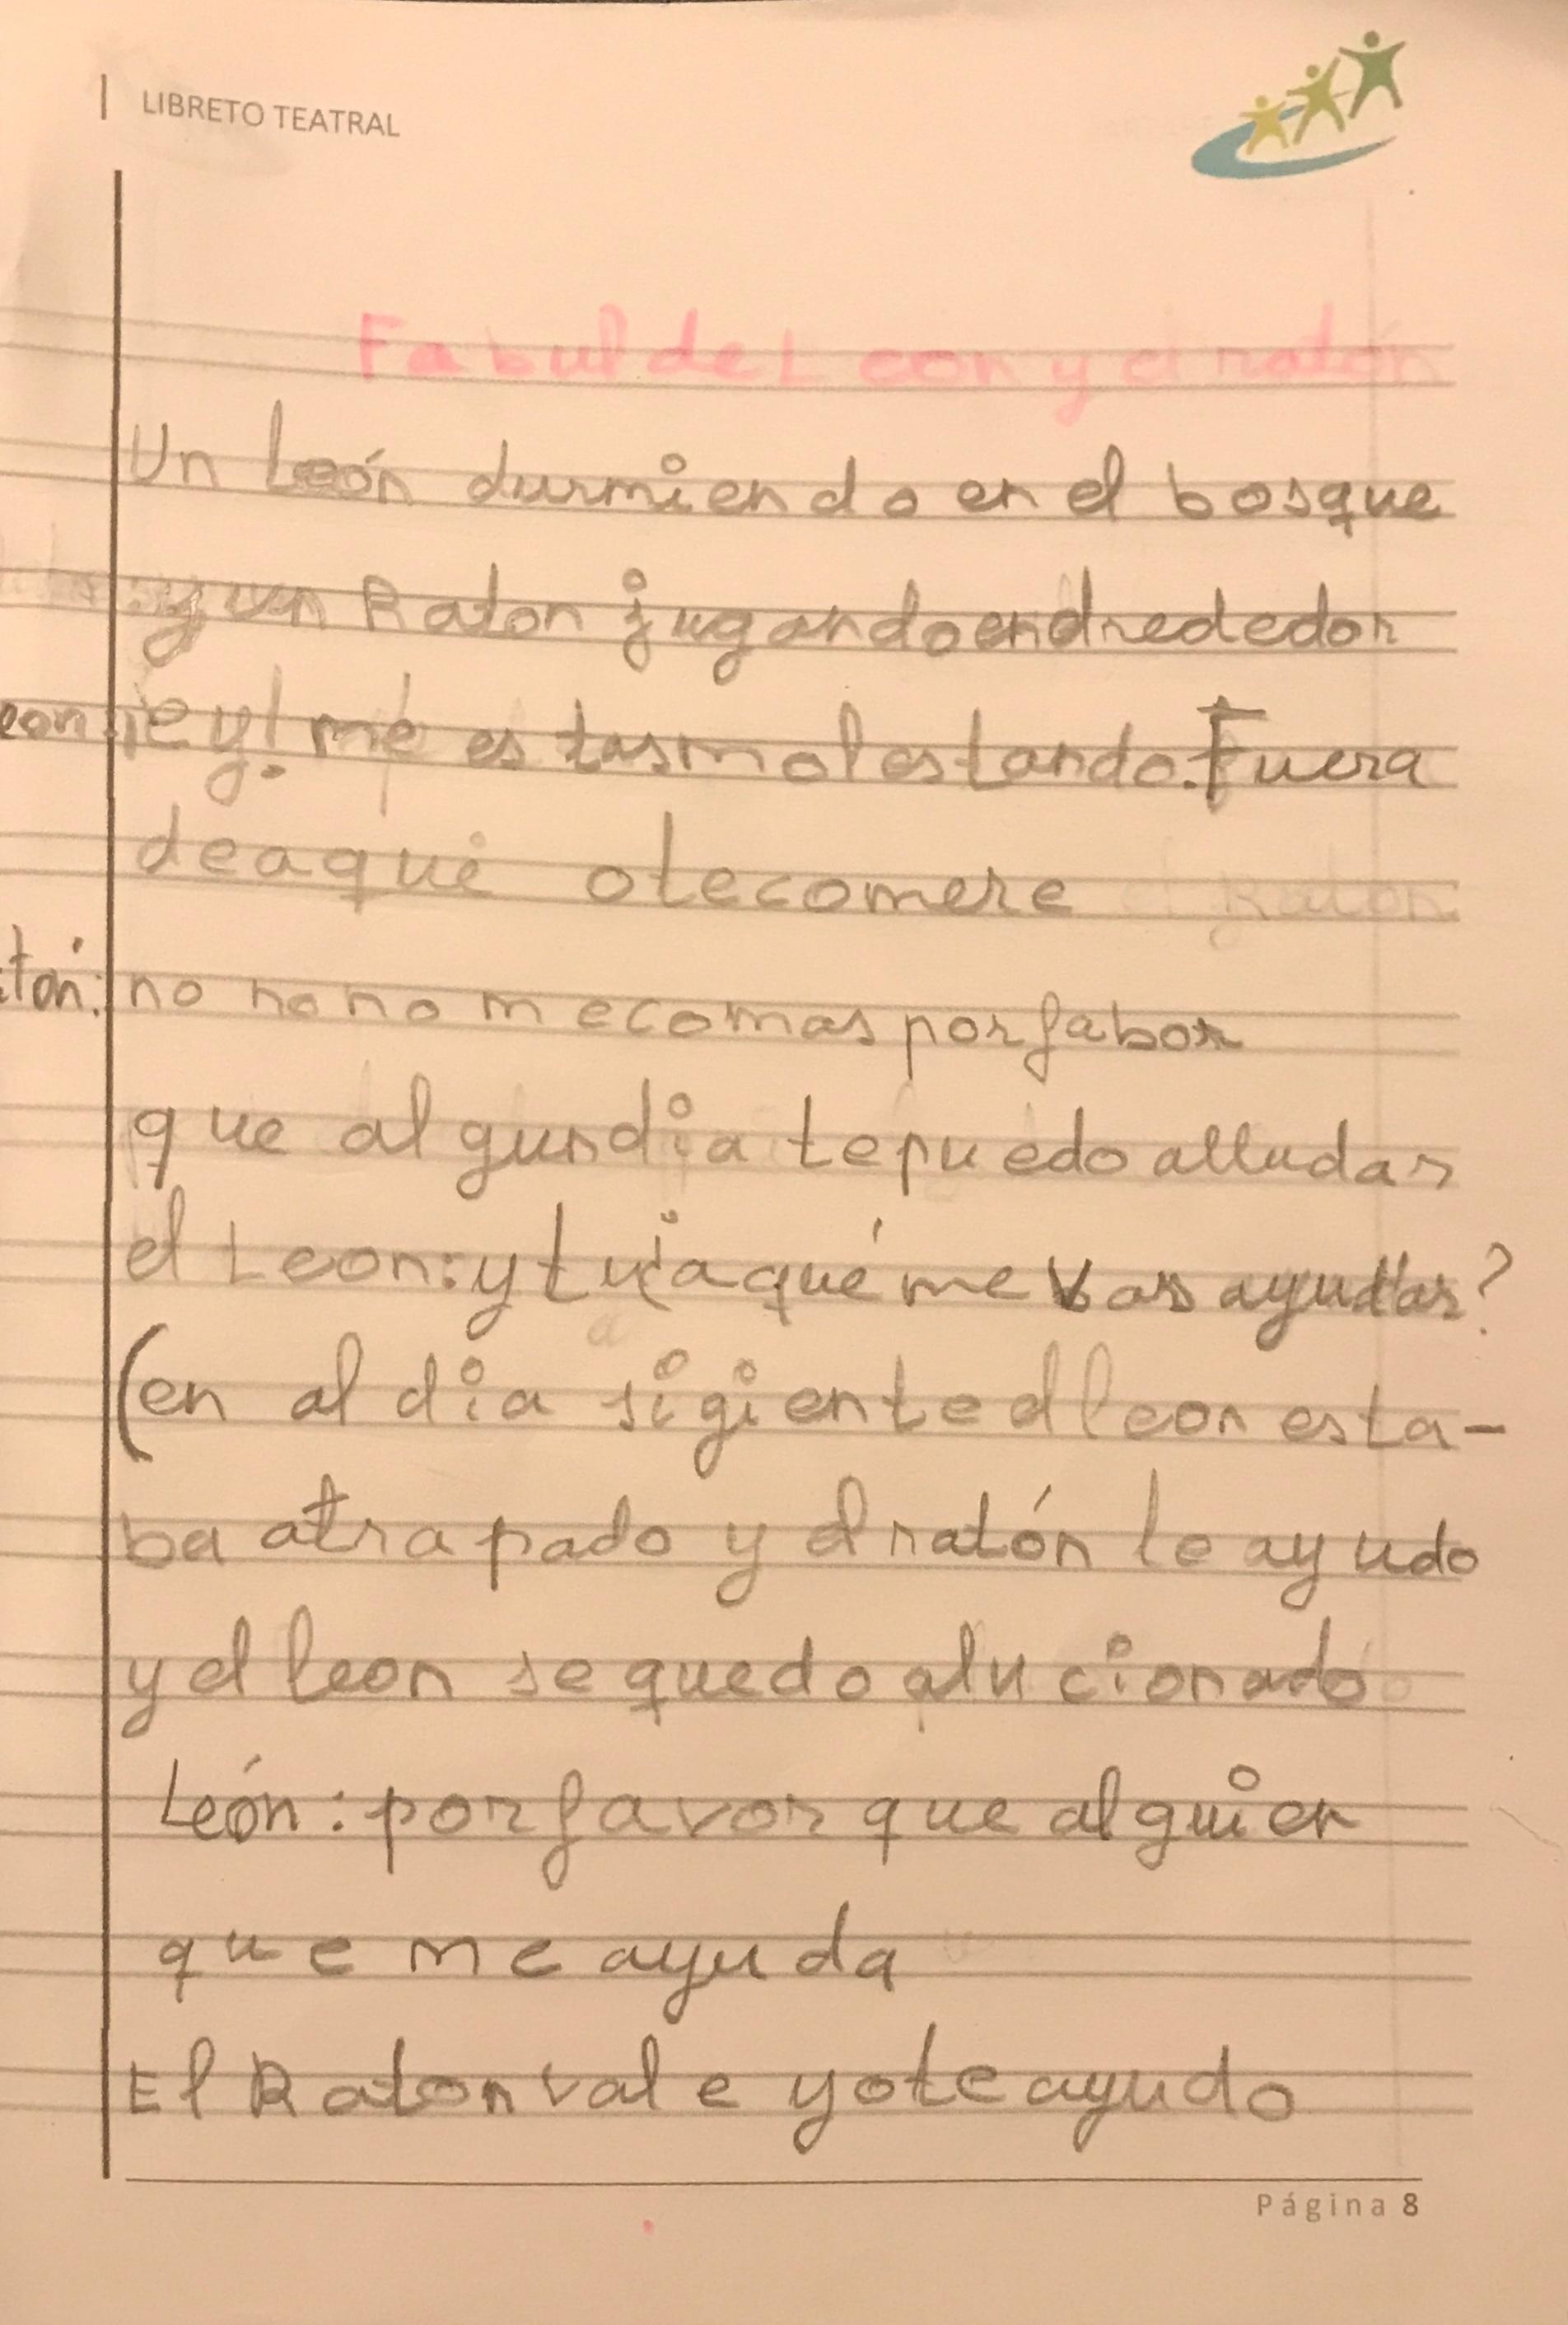 LIBRETO TEATRAL
Fabul de Leon y el ratón
Un León durmiendo en el bosque
y un Raton jugando endrededor
eon: ¡ey! me estas molestando. Fuera
de aqui o te comere
tón: no no no me comas por fabor
que algun dia te puedo alludar
el Leon: y tu ¿a qué me vas ayudar?
(en al dia sigiente el leon esta-
ba atrapado y el ratón le ayudo
y el leon se quedo alucionado
León: por favor que alguien
que me ayuda
El Raton vale yo te ayudo
Página 8